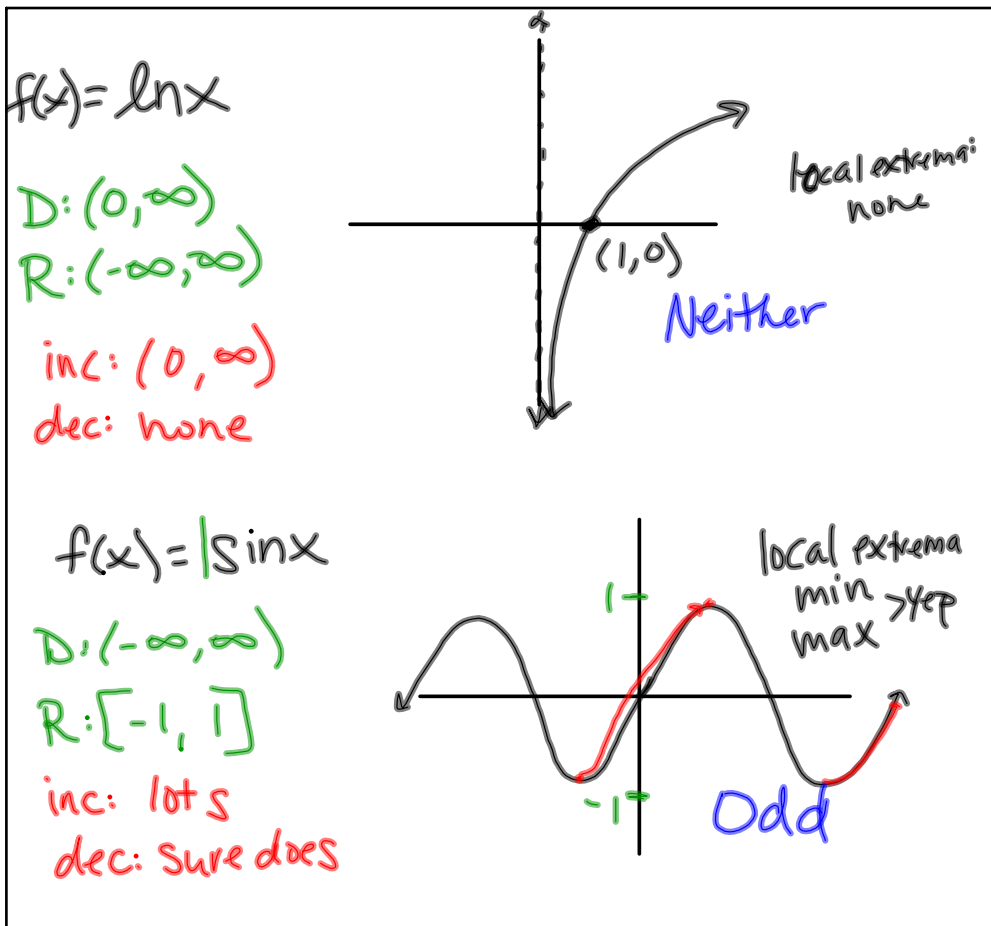 f(x)= lnx
D: (0, ∞)
R: (-∞, ∞)
inc: (0, ∞)
dec: none
local extrema:
none
(1,0)
Neither
f(x)= 1sinx
D: (-∞, ∞)
R: [-1, 1]
inc: lots
dec: sure does
1
-1
local extrema
min
max >yep
Odd